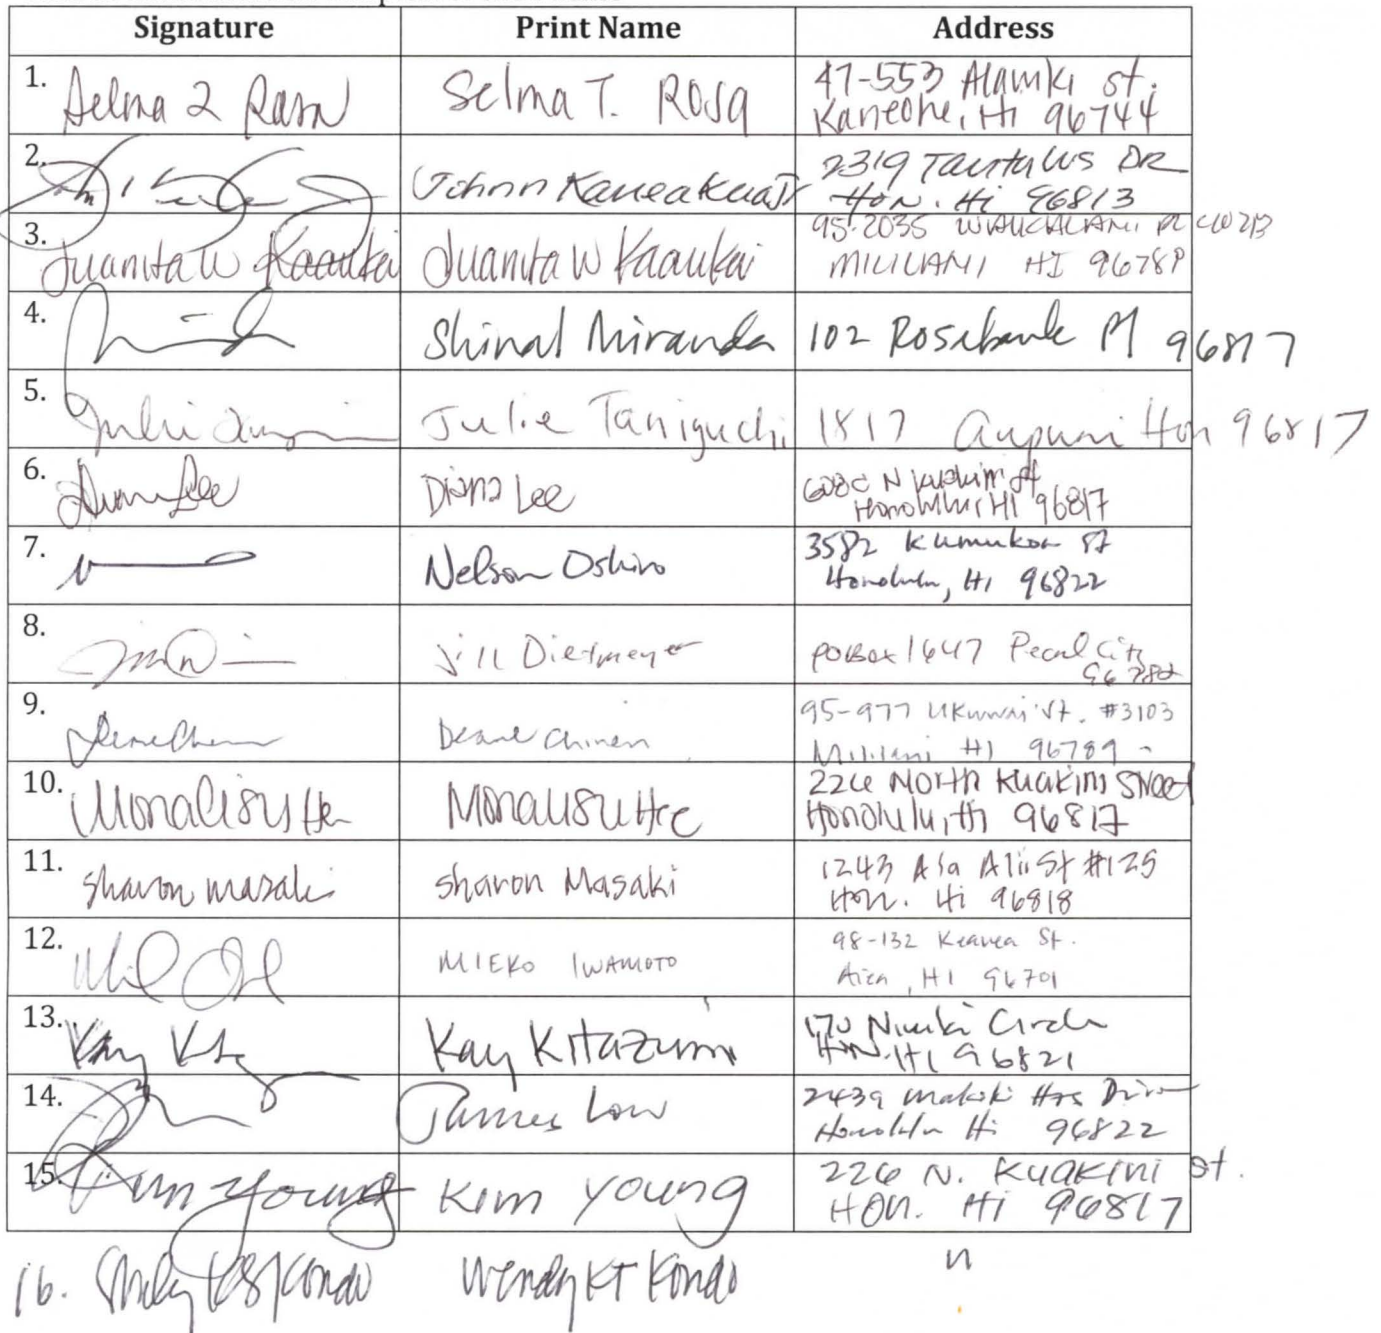 Signature Print Name Address
1. Selma T. Rosa Selma T. Rosa 47-553 Alawiki st.
Kaneohe, Hi 96744
2. Johnn Kaneakua Jr 2319 Tantalus DR
Hon. Hi 96813
3. Juanita W Kaaukai Juanita W Kaaukai 95-2035 PL
MILILANI HI 96789
4. Shinal Miranda 102 Rosebank Pl 96817
5. Julie Taniguchi 1817 Aupuni Hon 96817
6. Diana Lee Diana Lee N Kuakini st
Honolulu, HI 96817
7. Nelson Oshiro 3582 Kumukoa St
Honolulu, Hi 96822
8. Jill Dietmeyer PO Box 1647 Pearl City
96782
9. Deane Chinen 95-977 Ukuwai St. #3103
Mililani HI 96789
10. 226 North Kuakini Street
Honolulu, Hi 96817
11. Sharon Masaki Sharon Masaki 1243 Ala Alii St #125
Hon. Hi 96818
12. MIEKO IWAMOTO 98-132 St.
Aiea, HI 96701
13. Kay Kitazumi Niuiki Circle
HON. HI 96821
14. James Low 2439 Makiki Hts Drive
Honolulu Hi 96822
15. Kim Young Kim Young 226 N. Kuakini st.
HON. Hi 96817
16. Kondo Wendy KT Kondo "